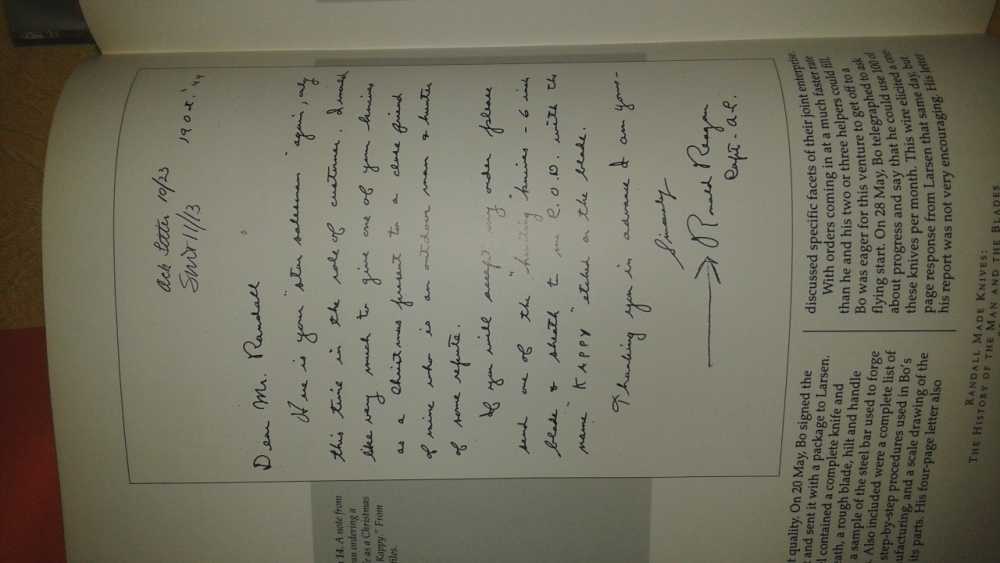 Ack Letter 10/23
Shid 11/13
19 Oct. '44
Dear Mr. Randall
Here is your star salesman again, only
this time in the role of customer. I would
like very much to give one of your knives
as a Christmas present to a close friend
of mine who is an outdoor man & hunter
of some repute.
If you will accept my order please
send one of the "hunting" knives - 6 inch
blade & sheath to me C.O.D. with the
name "KAPPY" etched on the blade.
Thanking you in advance I am yours -
Sincerely
Ronald Reagan
Capt - A.C.
14. A note from
ordering a
as a Christmas
Kappy." From
files.
t quality. On 20 May, Bo signed the
and sent it with a package to Larsen.
contained a complete knife and
ath, a rough blade, hilt and handle
a sample of the steel bar used to forge
Also included were a complete list of
step-by-step procedures used in Bo's
ufacturing, and a scale drawing of the
its parts. His four-page letter also
discussed specific facets of their joint enterprise.
With orders coming in at a much faster rate
than he and his two or three helpers could fill,
Bo was eager for this venture to get off to a
flying start. On 28 May, Bo telegraphed to ask
about progress and say that he could use 100 of
these knives per month. This wire elicited a one
page response from Larsen that same day, but
his report was not very encouraging. His letter
RANDALL MADE KNIVES:
THE HISTORY OF THE MAN AND THE BLADES